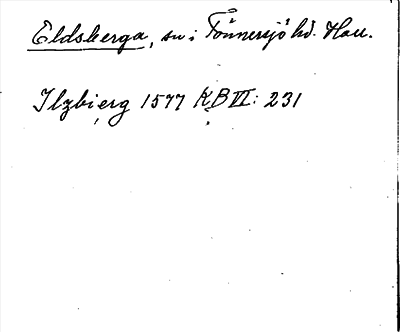 Eldsberga, sn i Tönnersjö hd. Hall.
Ilzbierg 1577 KB VI: 231